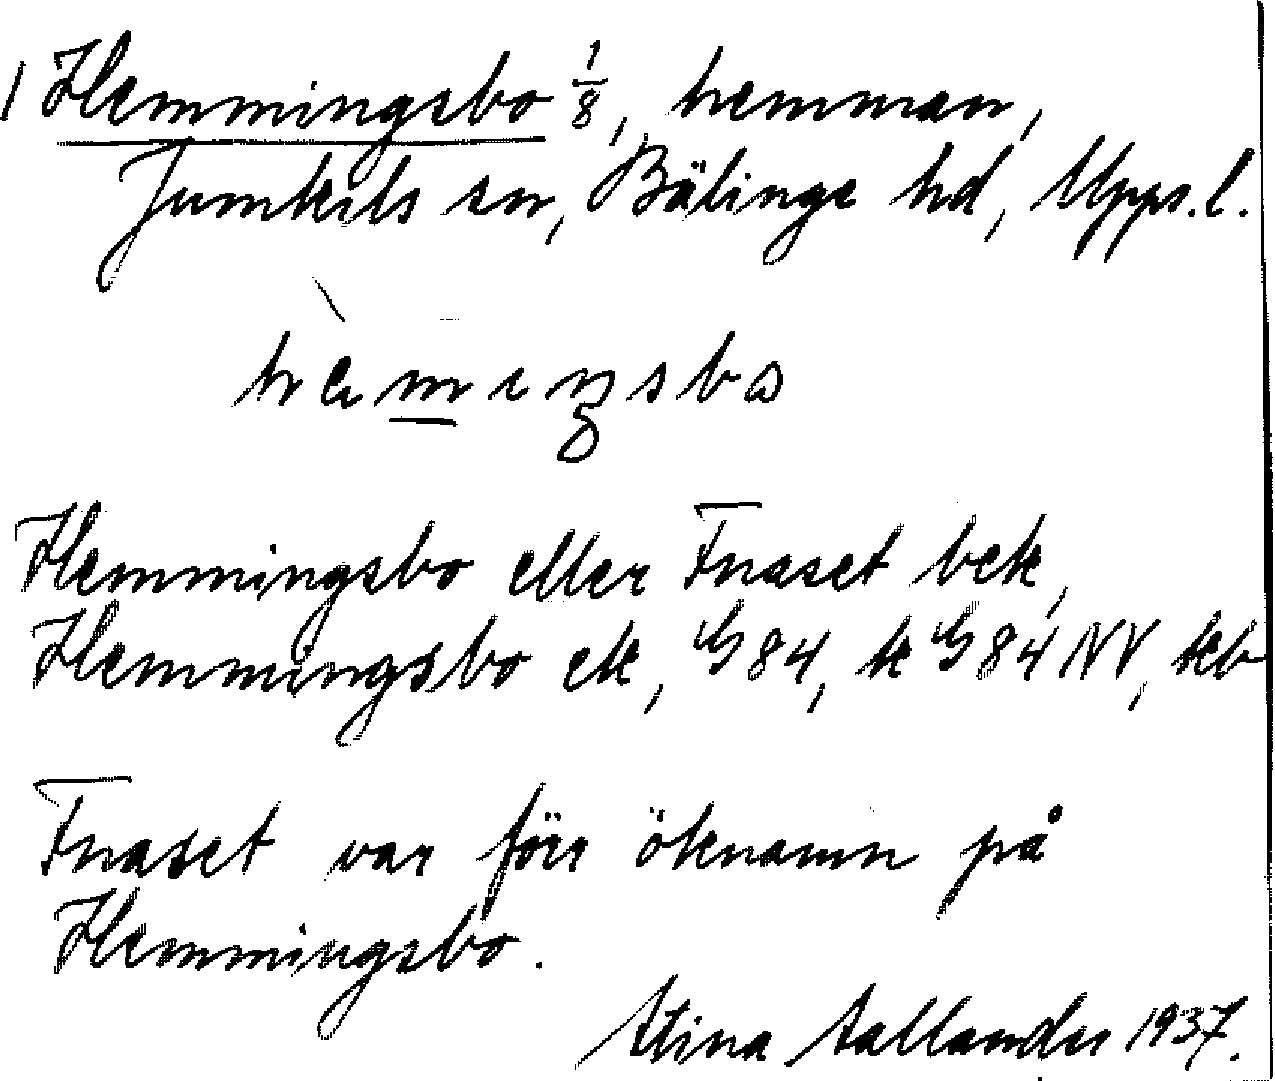 1 Hemmingsbo 1/8, hemman,
Jumkils sn, Bälinge hd, Upps. l.
Hemmingsbo eller Fnaset bek,
Hemmingsbo ek, G 84, k G 84 NV, kb
Fnaset var förr öknamn på
Hemmingsbo.
Stina Sallander 1937.